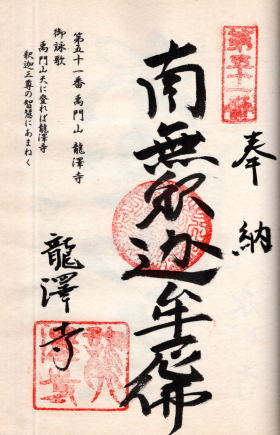 第五十一番
奉納
南無釈迦牟尼佛
龍澤寺
第五十一番 禹門山 龍澤寺
御詠歌
禹門山天に登れば龍澤寺
釈迦三尊の智慧にあまねく